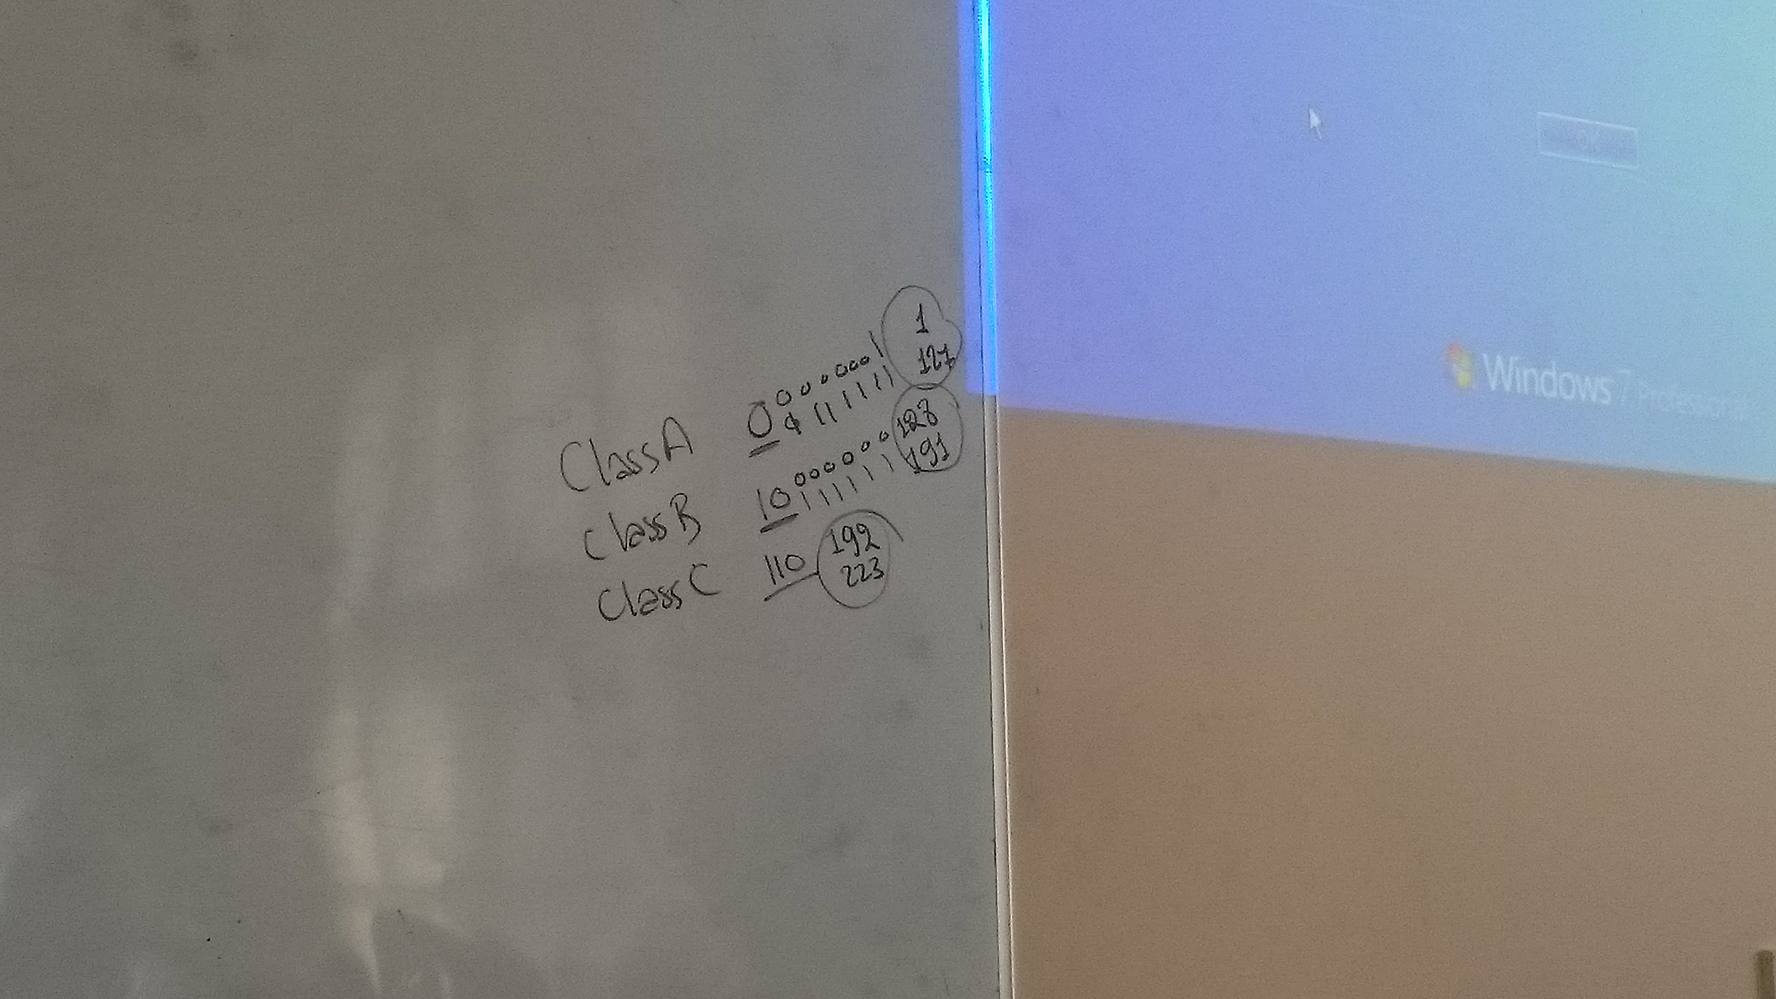 Class A 0 0 0 0 0 0 0 1 1
1 1 1 1 1 1 1 127
Class B 10 0 0 0 0 0 0 128
1 1 1 1 1 1 191
Class C 110 192
223
OK
Windows 7 Professional